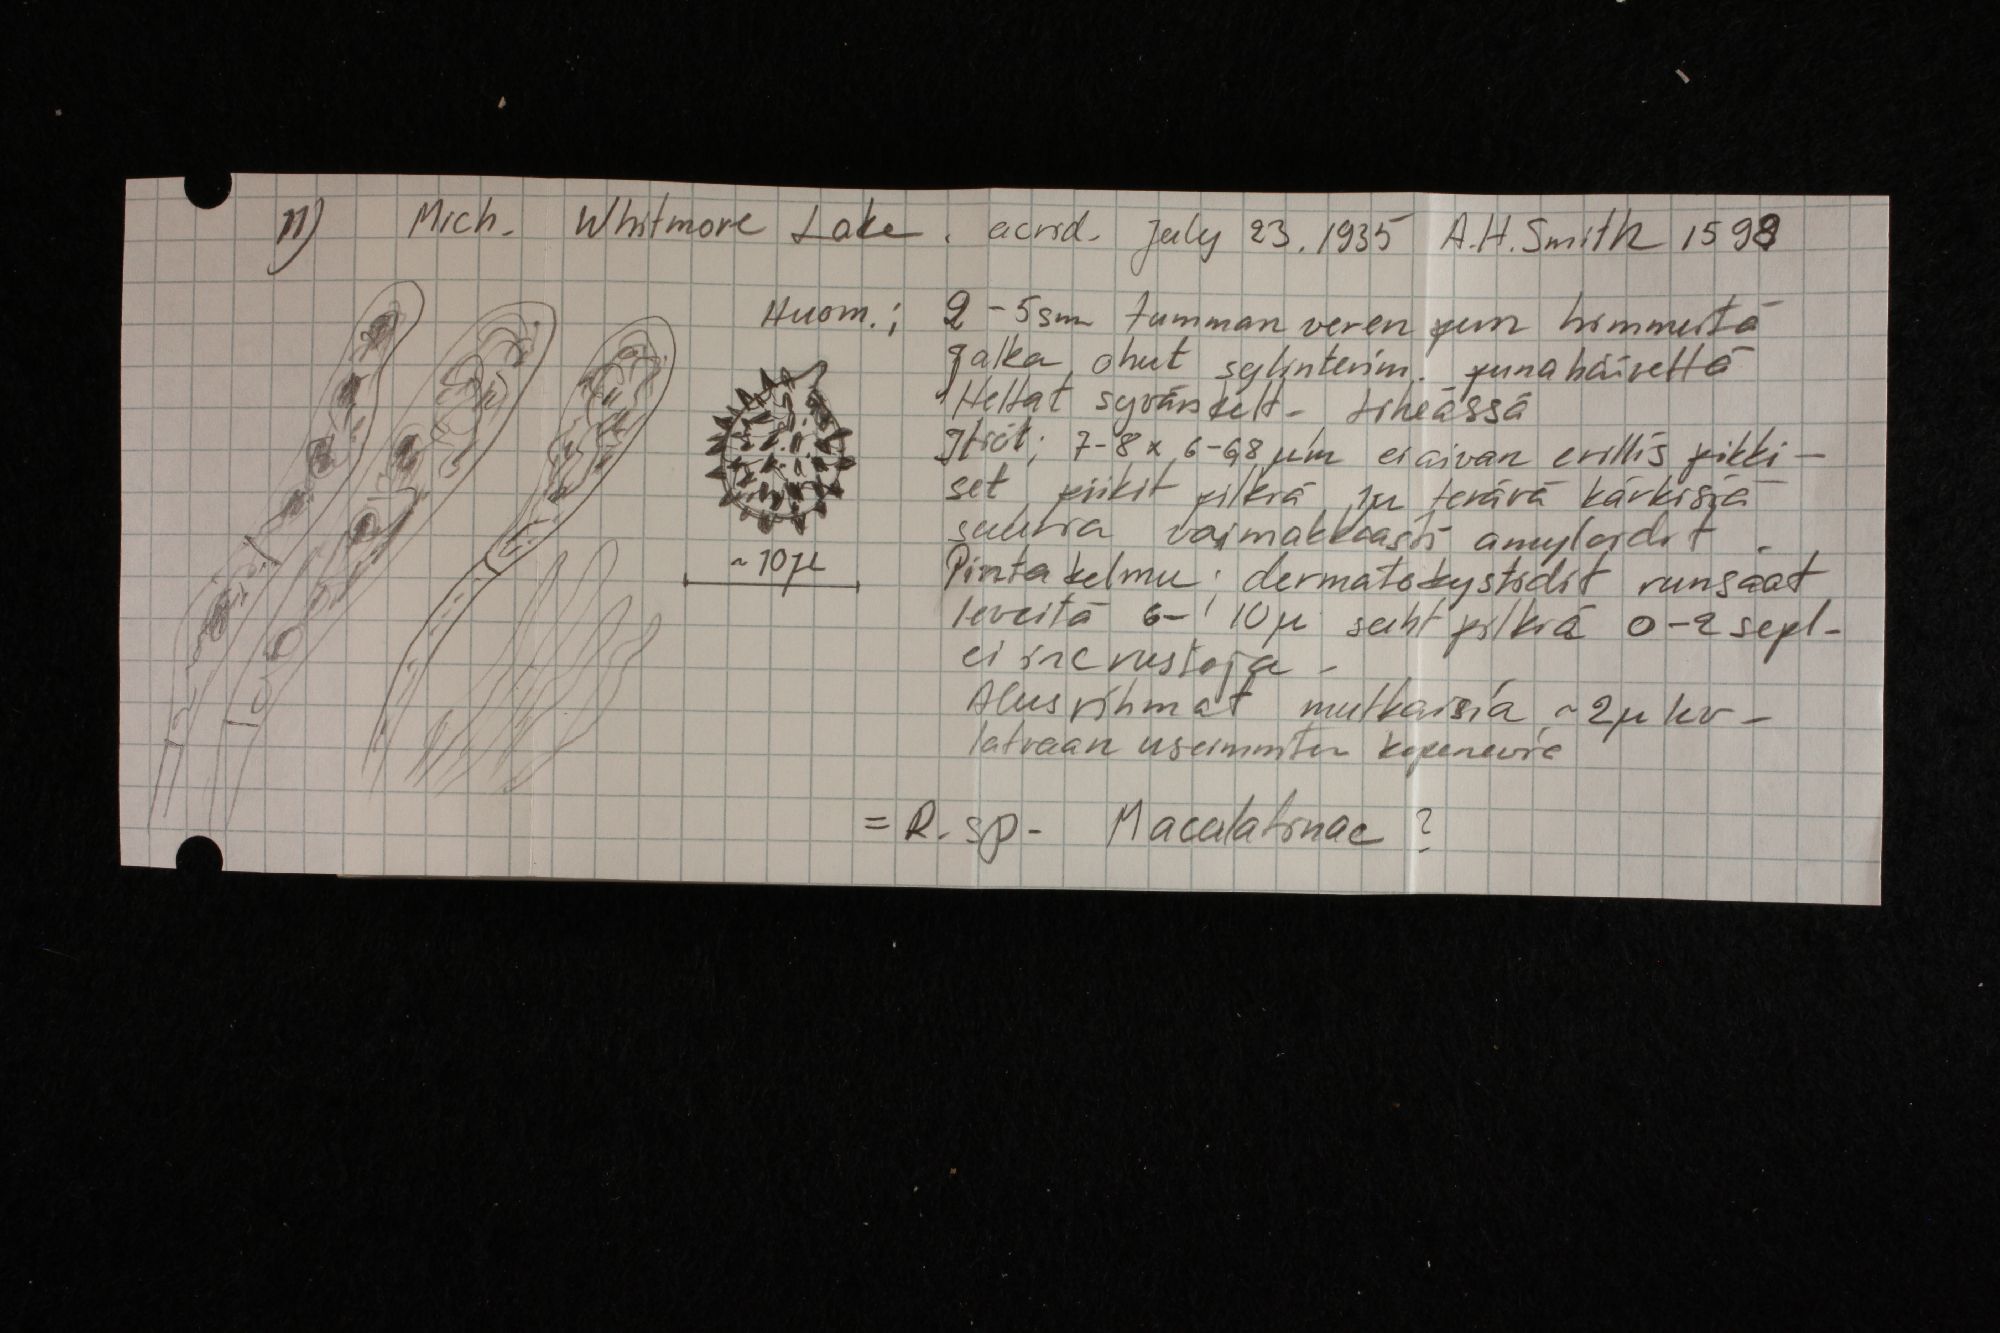 11) Mich. Whitmore Lake. acrid. July 23. 1935 A.H. Smith 1598
Huom.; 2-5 sm tumman veren pun himmeitä
Jalka ohut sylinterim. punahäivettä
Heltat syvänkelt- tiheässä
Itiöt; 7-8 x 6-6,8 µm ei aivan erillis piikki-
set piikit pitkiä 1µ terävä kärkisiä
suuria voimakkaasti amyloidit
Pintakelmu; dermatokystidit runsaat
leveitä 6-10µ suht pitkiä 0-2 sept-
ei incrustoja -
Alusrihmat mutkaisia ~2µ
latvaan useimmiten kapenevia
~10µ
= R. sp- Maculatinae ?